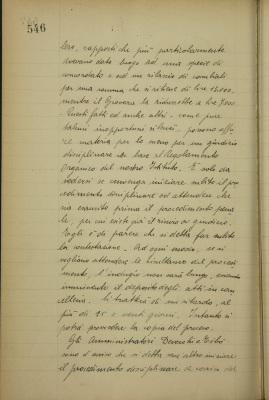 546
loro, rapporti che più particolarmente
avevano dato luogo ad una specie di
concordato e ad un rilascio di cambiali
per una somma che si ritiene di lire 12000.
mentre il Giovara la ridurrebbe a lire 7000.
Questi fatti ed anche altri, come pure
talune inopportune visite, possono offri
re materia per lo meno per un giudizio
disciplinare in base al Regolamento
organico del nostro Istituto. È solo da
vedersi se convenga iniziare subito il pro
cedimento disciplinare od attendere che
sia esaurito prima il procedimento pena
le, per cui esiste già il rinvio a giudizio.
Egli è di parere che si debba far subito
la contestazione. Ad ogni modo, se si
vogliano attendere le risultanze del procedi
mento, l'indugio non sarà lungo, essendo
imminente il deposito degli atti in can
celleria. Si tratterà di un ritardo, al
più di 15 o venti giorni. Intanto si
potrà provvedere la copia del processo.
Gli Amministratori Devesti e
sono d'avviso che si debba senz'altro iniziare
il procedimento disciplinare a carico del